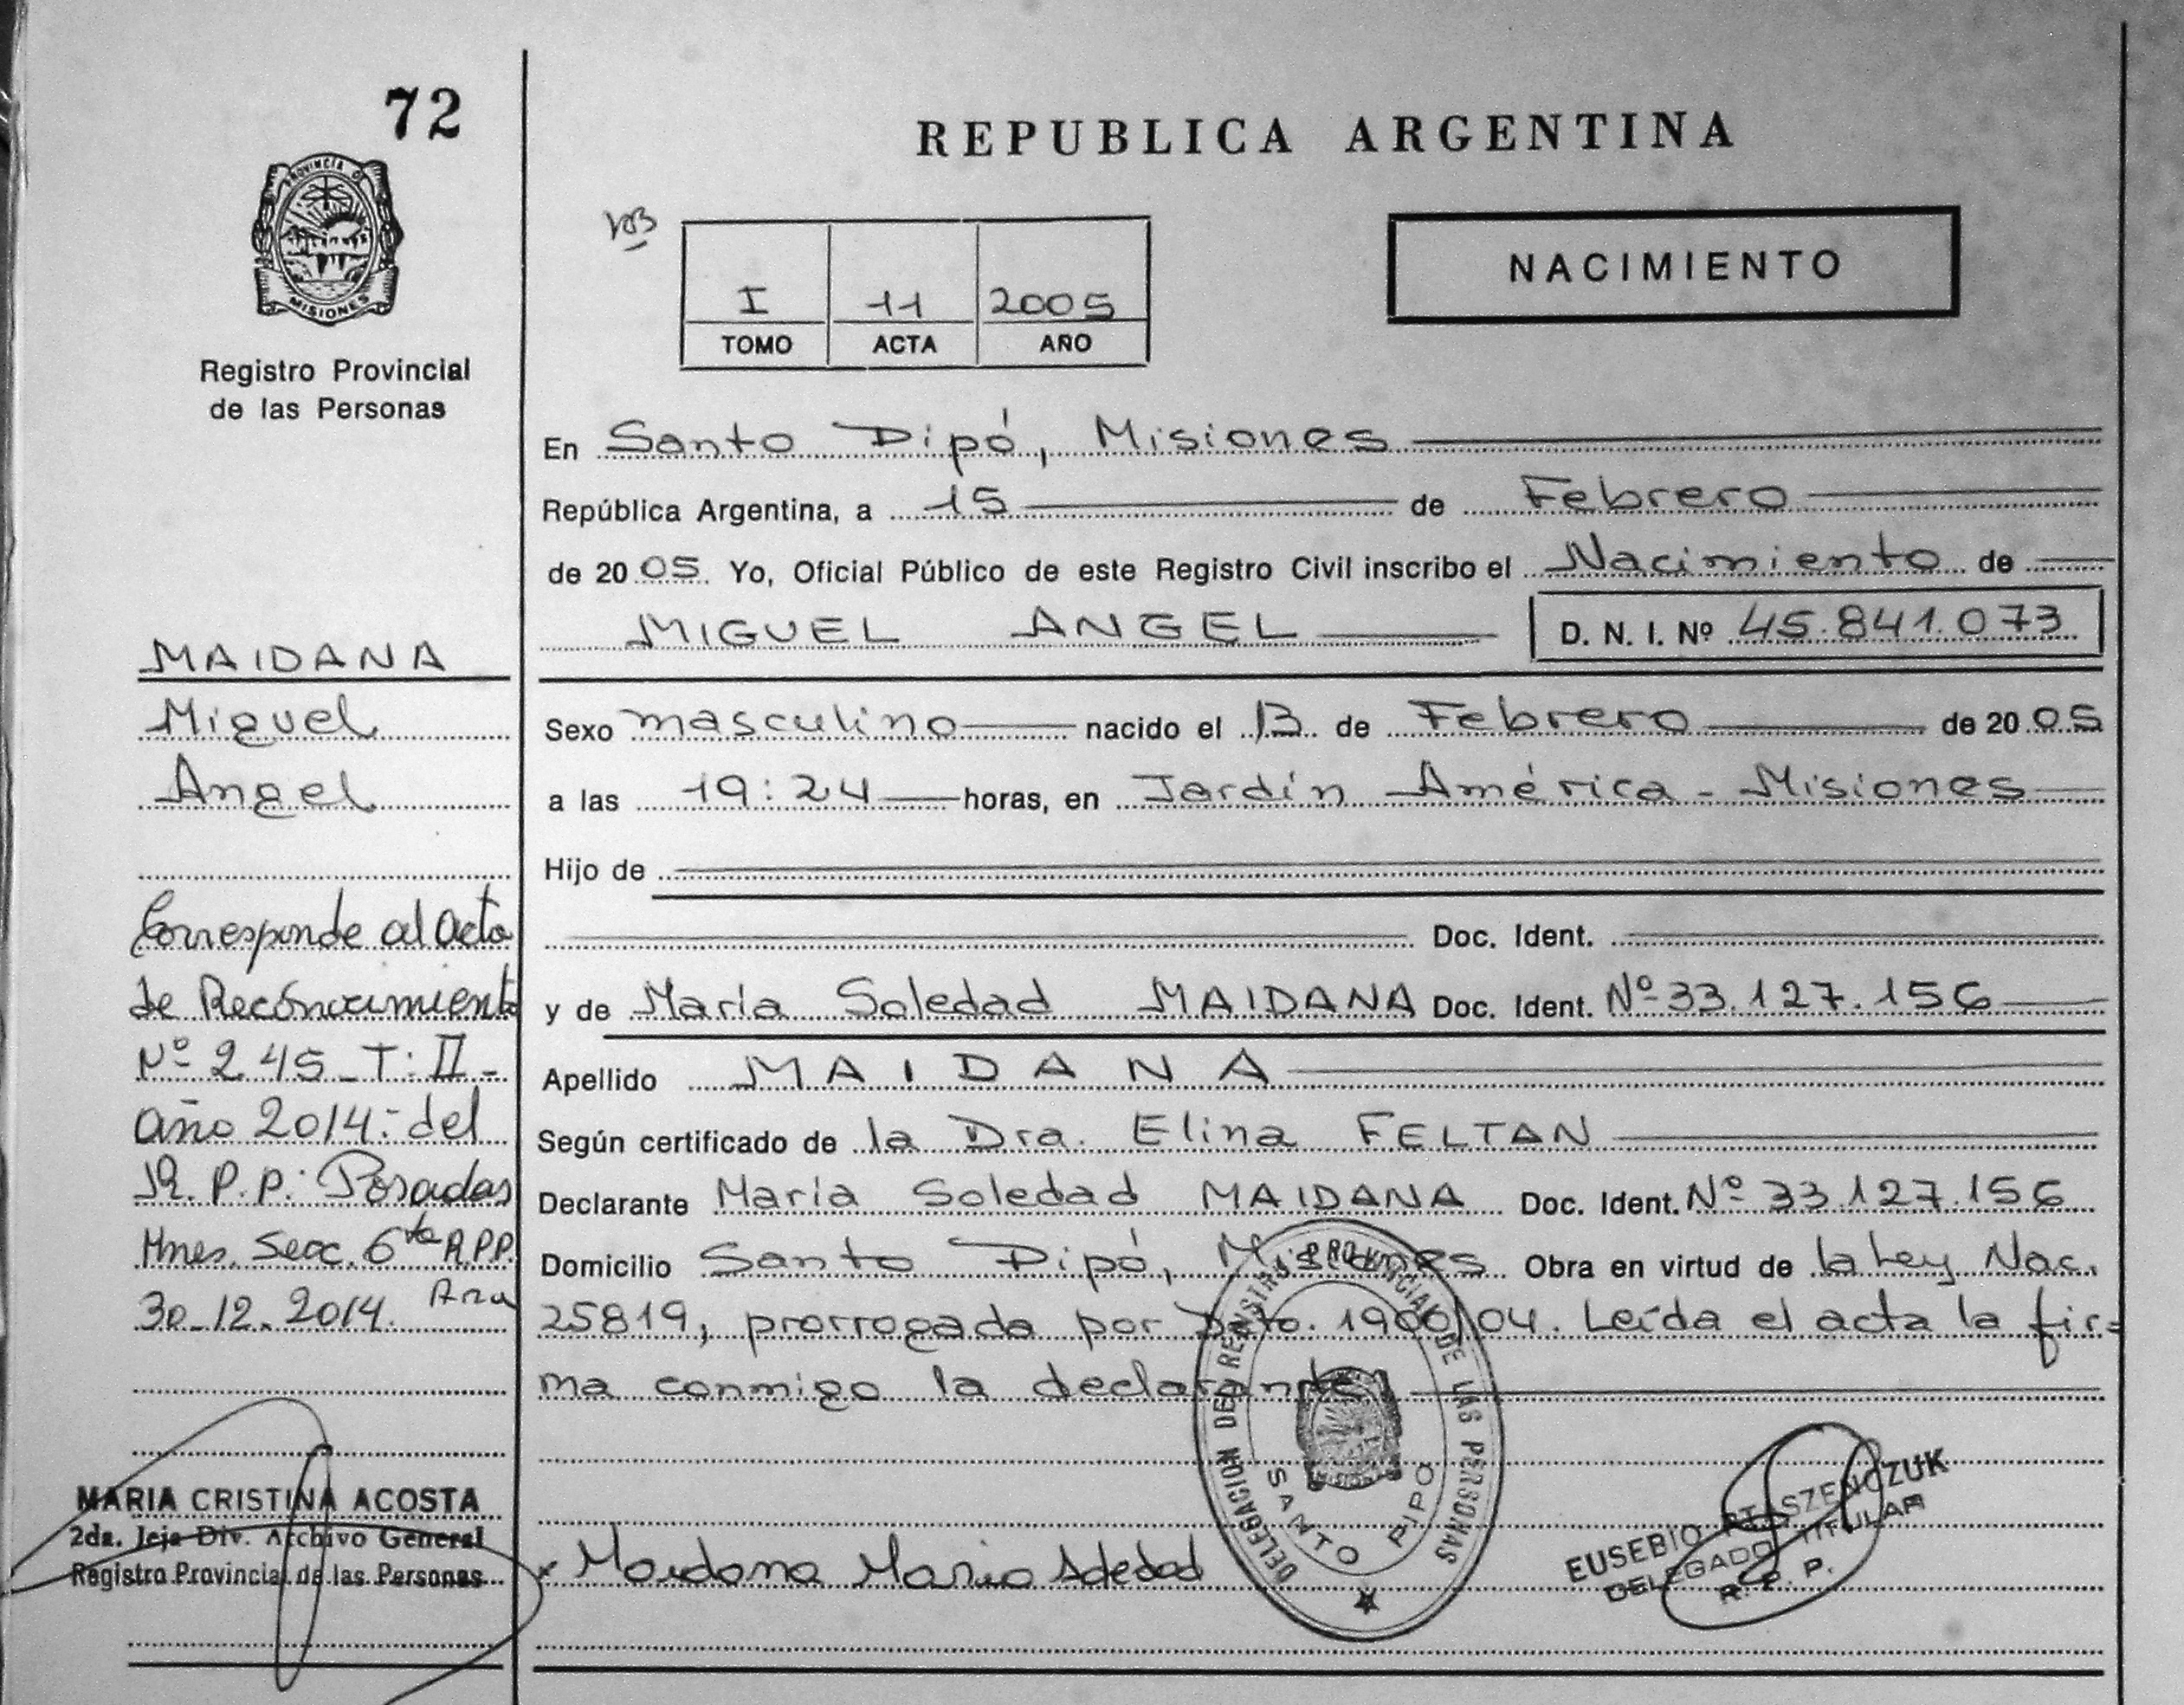 72
PROVINCIA D
MISIONES
Registro Provincial
de las Personas
MAIDANA
Miguel
Angel
Corresponde al acta
de Reconocimiento
Nº 245_T: II_
año 2014: del
R. P. P. Posadas
Mnes. Secc. 6ta R.P.P.
30_12_2014.
MARIA CRISTINA ACOSTA
2da. Jefa Div. Archivo General
Registro Provincial de las Personas
REPUBLICA ARGENTINA
I 11 2005
TOMO ACTA AÑO
NACIMIENTO
En Santo Pipó, Misiones
República Argentina, a 15 de Febrero
de 2005. Yo, Oficial Público de este Registro Civil inscribo el Nacimiento de
MIGUEL ANGEL D. N. I. Nº 45.841.073
Sexo masculino nacido el 13 de Febrero de 2005
a las 19:24 horas, en Jardín América - Misiones
Hijo de
Doc. Ident.
y de María Soledad MAIDANA Doc. Ident. Nº 33.127.156
Apellido MAIDANA
Según certificado de la Dra. Elina FELTAN
Declarante María Soledad MAIDANA Doc. Ident. Nº 33.127.156
Domicilio Santo Pipó, Misiones Obra en virtud de la Ley Nac.
25819, prorrogada por Dcto. 1900/04. Leída el acta la fir=
ma conmigo la declarante.
DELEGACION DEL REGISTRO PROVINCIAL DE LAS PERSONAS
SANTO PIPO
Maidana Maria Soledad
EUSEBIO PTASZENCZUK
DELEGADO TITULAR
R. P. P.